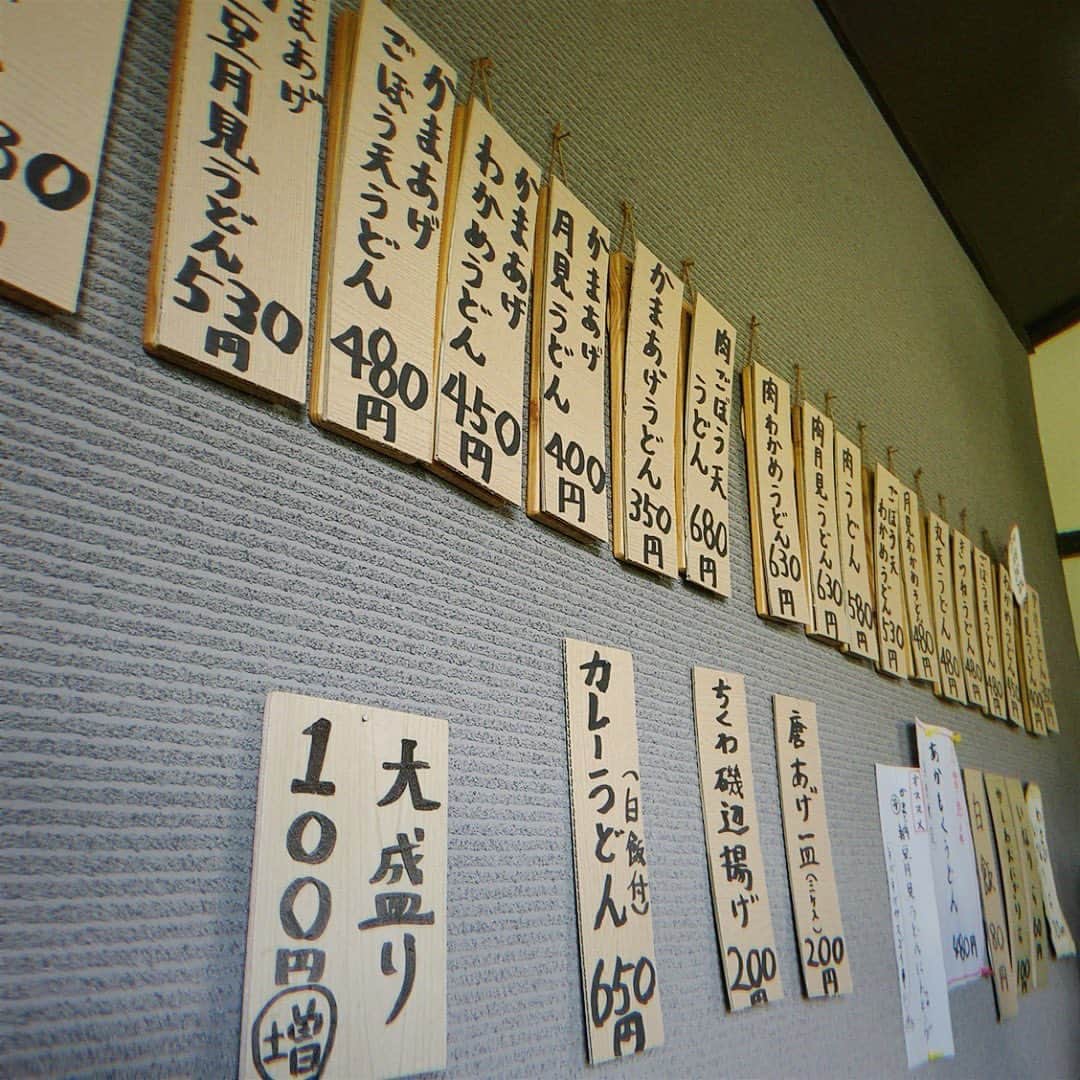 30
円
まあげ
豆月見うどん
530
円
かまあげ
ごぼう天うどん
480
円
かまあげ
わかめうどん
450
円
かまあげ
月見うどん
400
円
かまあげうどん
350
円
肉ごぼう天
うどん
680
円
肉わかめうどん
630
円
肉月見うどん
630
円
肉うどん
580
円
ごぼう天
わかめうどん
530
円
月見わかめうどん
480
円
丸天うどん
480
円
きつねうどん
480
円
ごぼう天うどん
480
円
大盛り
100円
増
カレーうどん
(白飯付)
650
円
ちくわ磯辺揚げ
200
円
唐あげ一皿(三ケ入)
200
円
オススメ
あかもくうどん
480円
白飯
180
円